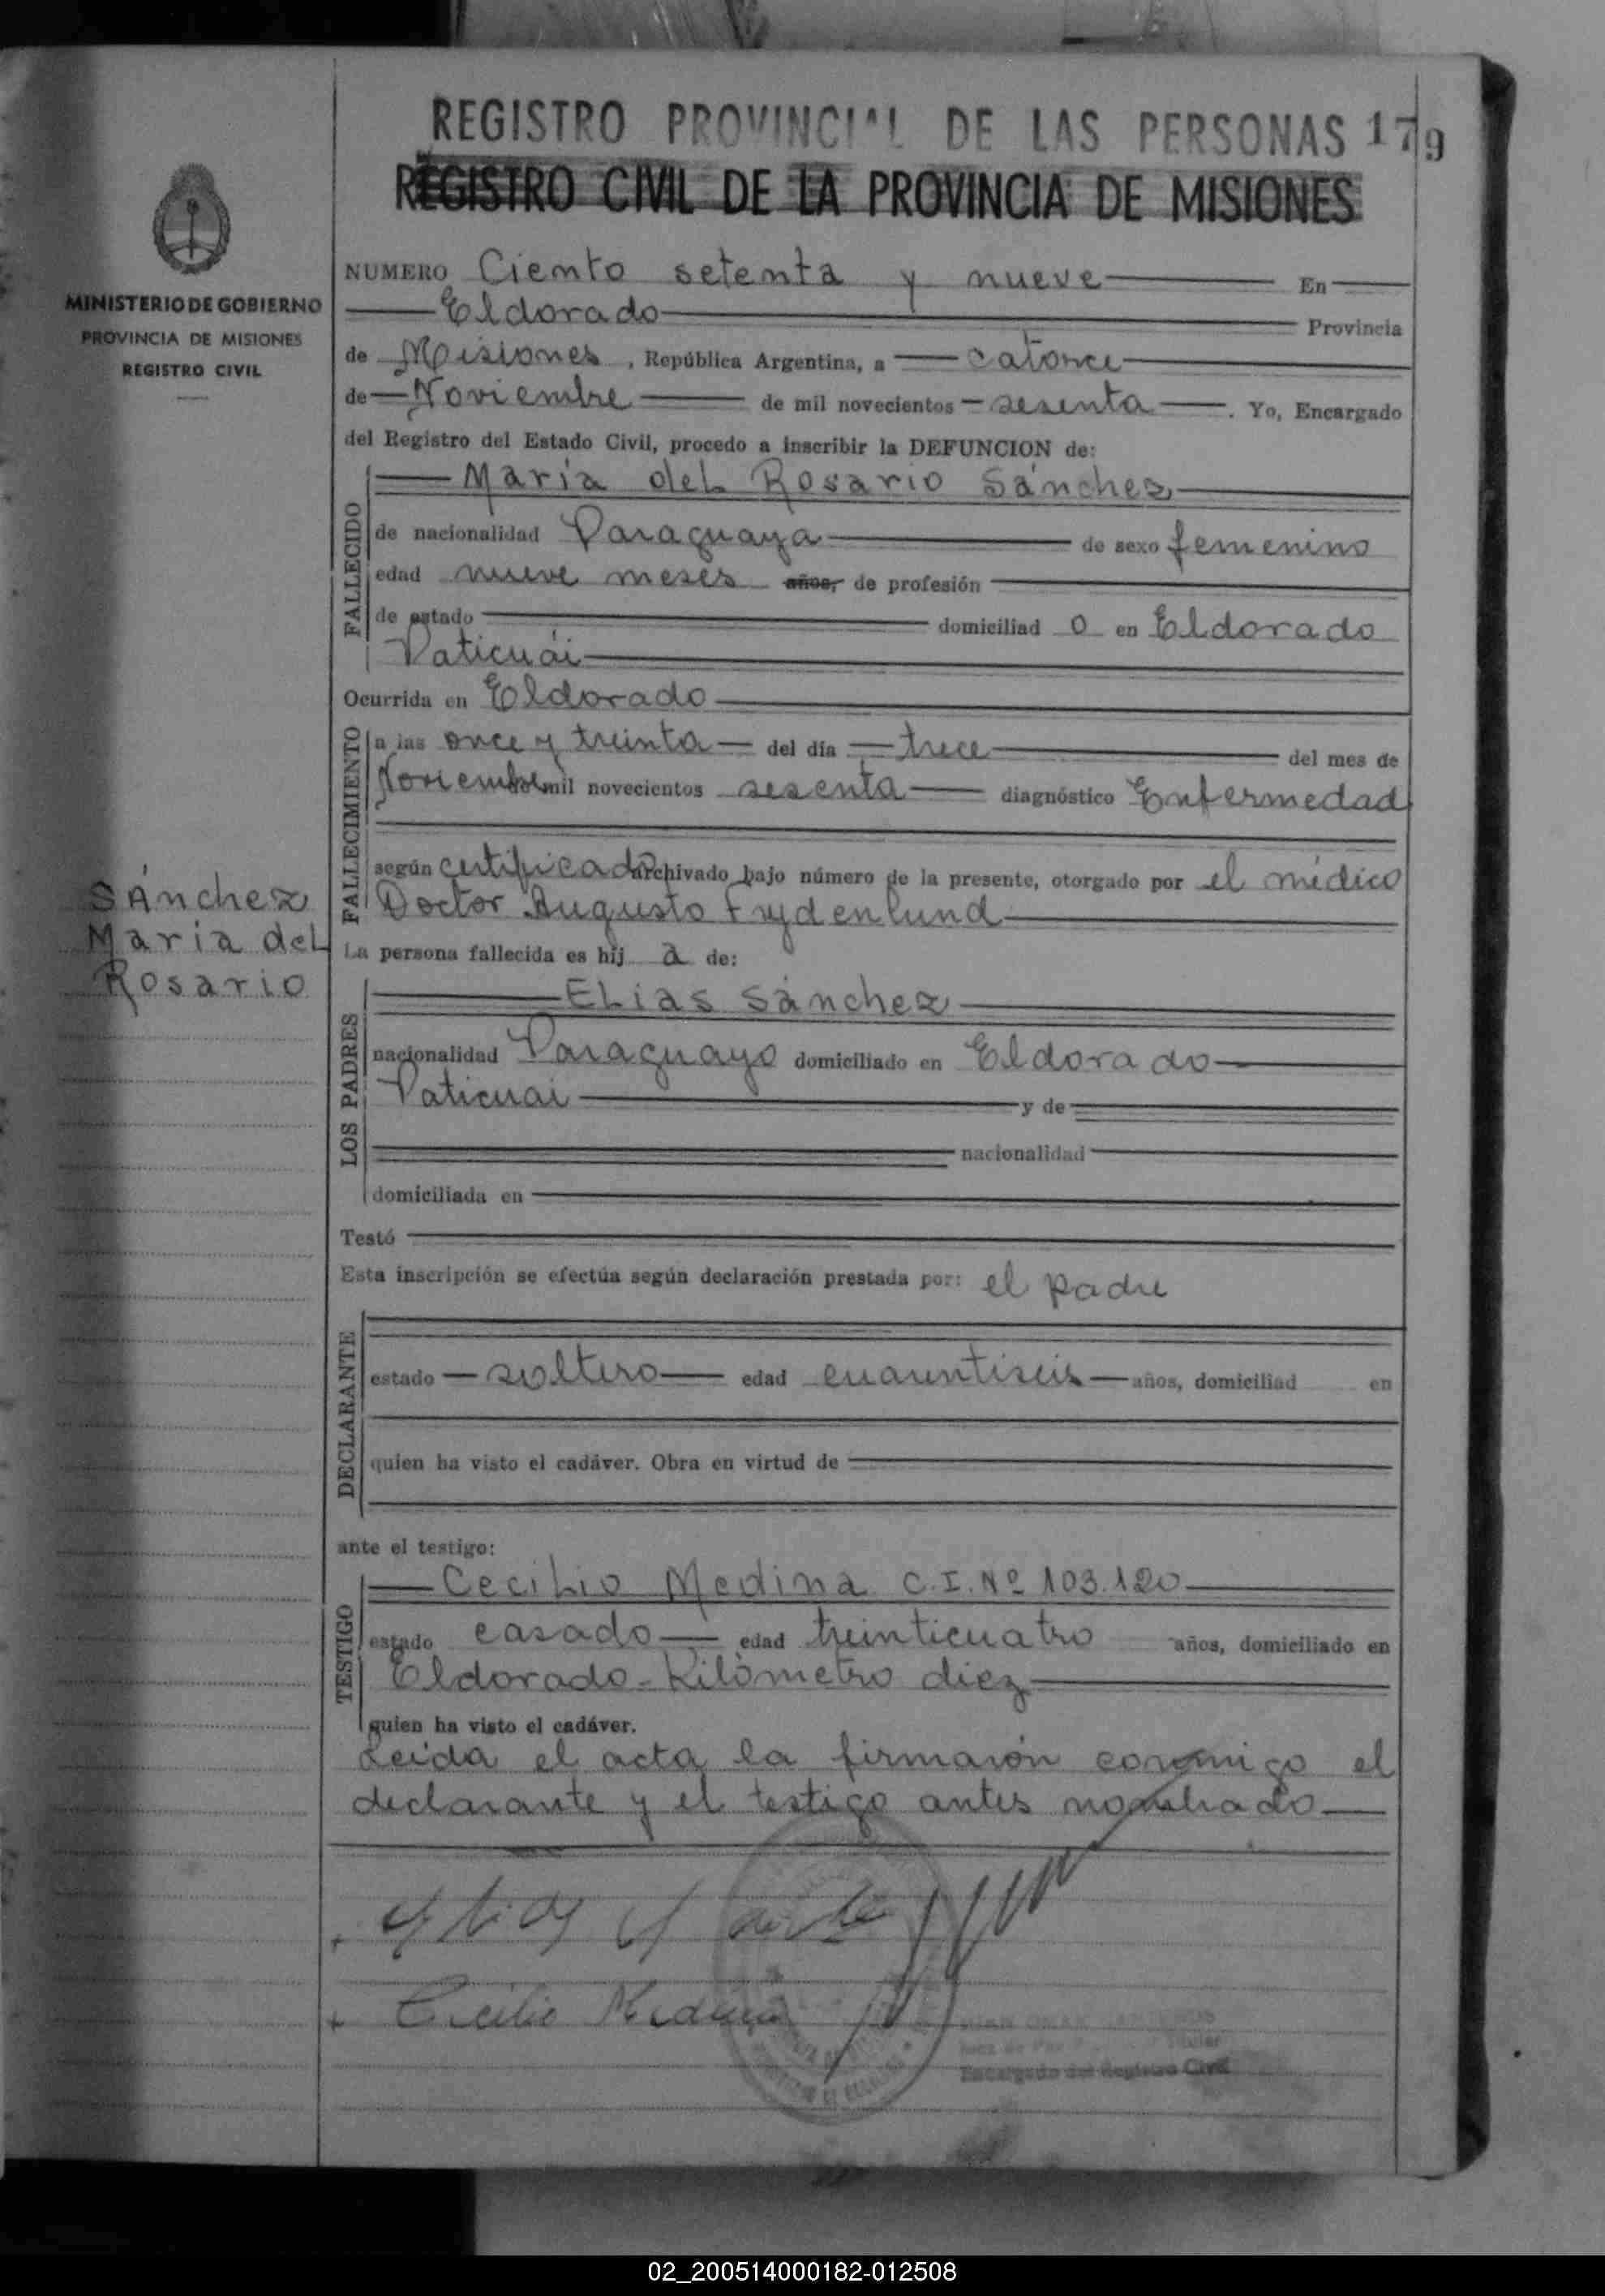 REGISTRO PROVINCIAL DE LAS PERSONAS 179
REGISTRO CIVIL DE LA PROVINCIA DE MISIONES
MINISTERIO DE GOBIERNO
PROVINCIA DE MISIONES
REGISTRO CIVIL
NUMERO Ciento setenta y nueve En
Eldorado Provincia
de Misiones, República Argentina, a catorce
de Noviembre de mil novecientos sesenta. Yo, Encargado
del Registro del Estado Civil, procedo a inscribir la DEFUNCION de:
FALLECIDO
María del Rosario Sánchez
de nacionalidad Paraguaya de sexo femenino
edad nueve meses años, de profesión
de estado domiciliad o en Eldorado
Paticuái
Ocurrida en Eldorado
FALLECIMIENTO
a las once y treinta del día trece del mes de
Noviembre mil novecientos sesenta diagnóstico Enfermedad
según certificado archivado bajo número de la presente, otorgado por el médico
Doctor Augusto Frydenlund
Sánchez
María del
Rosario
La persona fallecida es hij a de:
LOS PADRES
Elías Sánchez
nacionalidad Paraguayo domiciliado en Eldorado
Paticuai y de
nacionalidad
domiciliada en
Testó
Esta inscripción se efectúa según declaración prestada por: el padre
DECLARANTE
estado soltero edad cuarentiseis años, domiciliad en
quien ha visto el cadáver. Obra en virtud de
ante el testigo:
TESTIGO
Cecilio Medina C.I. Nº 103.120
estado casado edad treinticuatro años, domiciliado en
Eldorado - Kilómetro diez
quien ha visto el cadáver.
Leída el acta la firmarón conmigo el
declarante y el testigo antes nombrado
Cecilio Medina
Encargado del Registro Civil
02_200514000182-012508